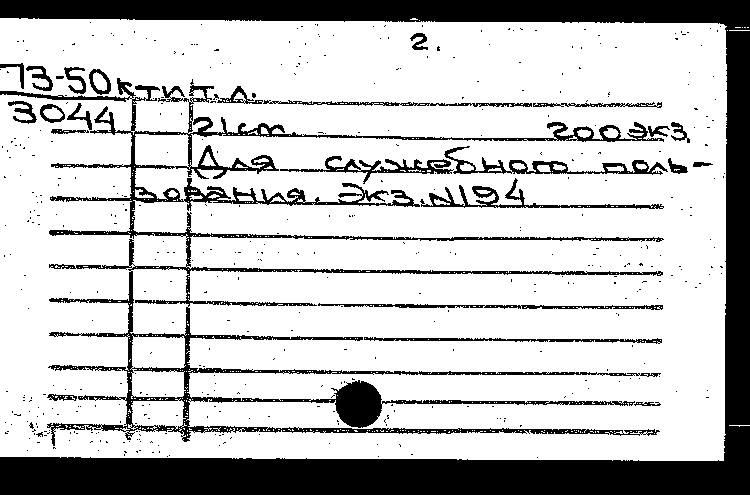 2.
73-50 кти т. л.
3044
21 cm. 200 экз.
Для служебного поль-
зования. Экз. N 194.